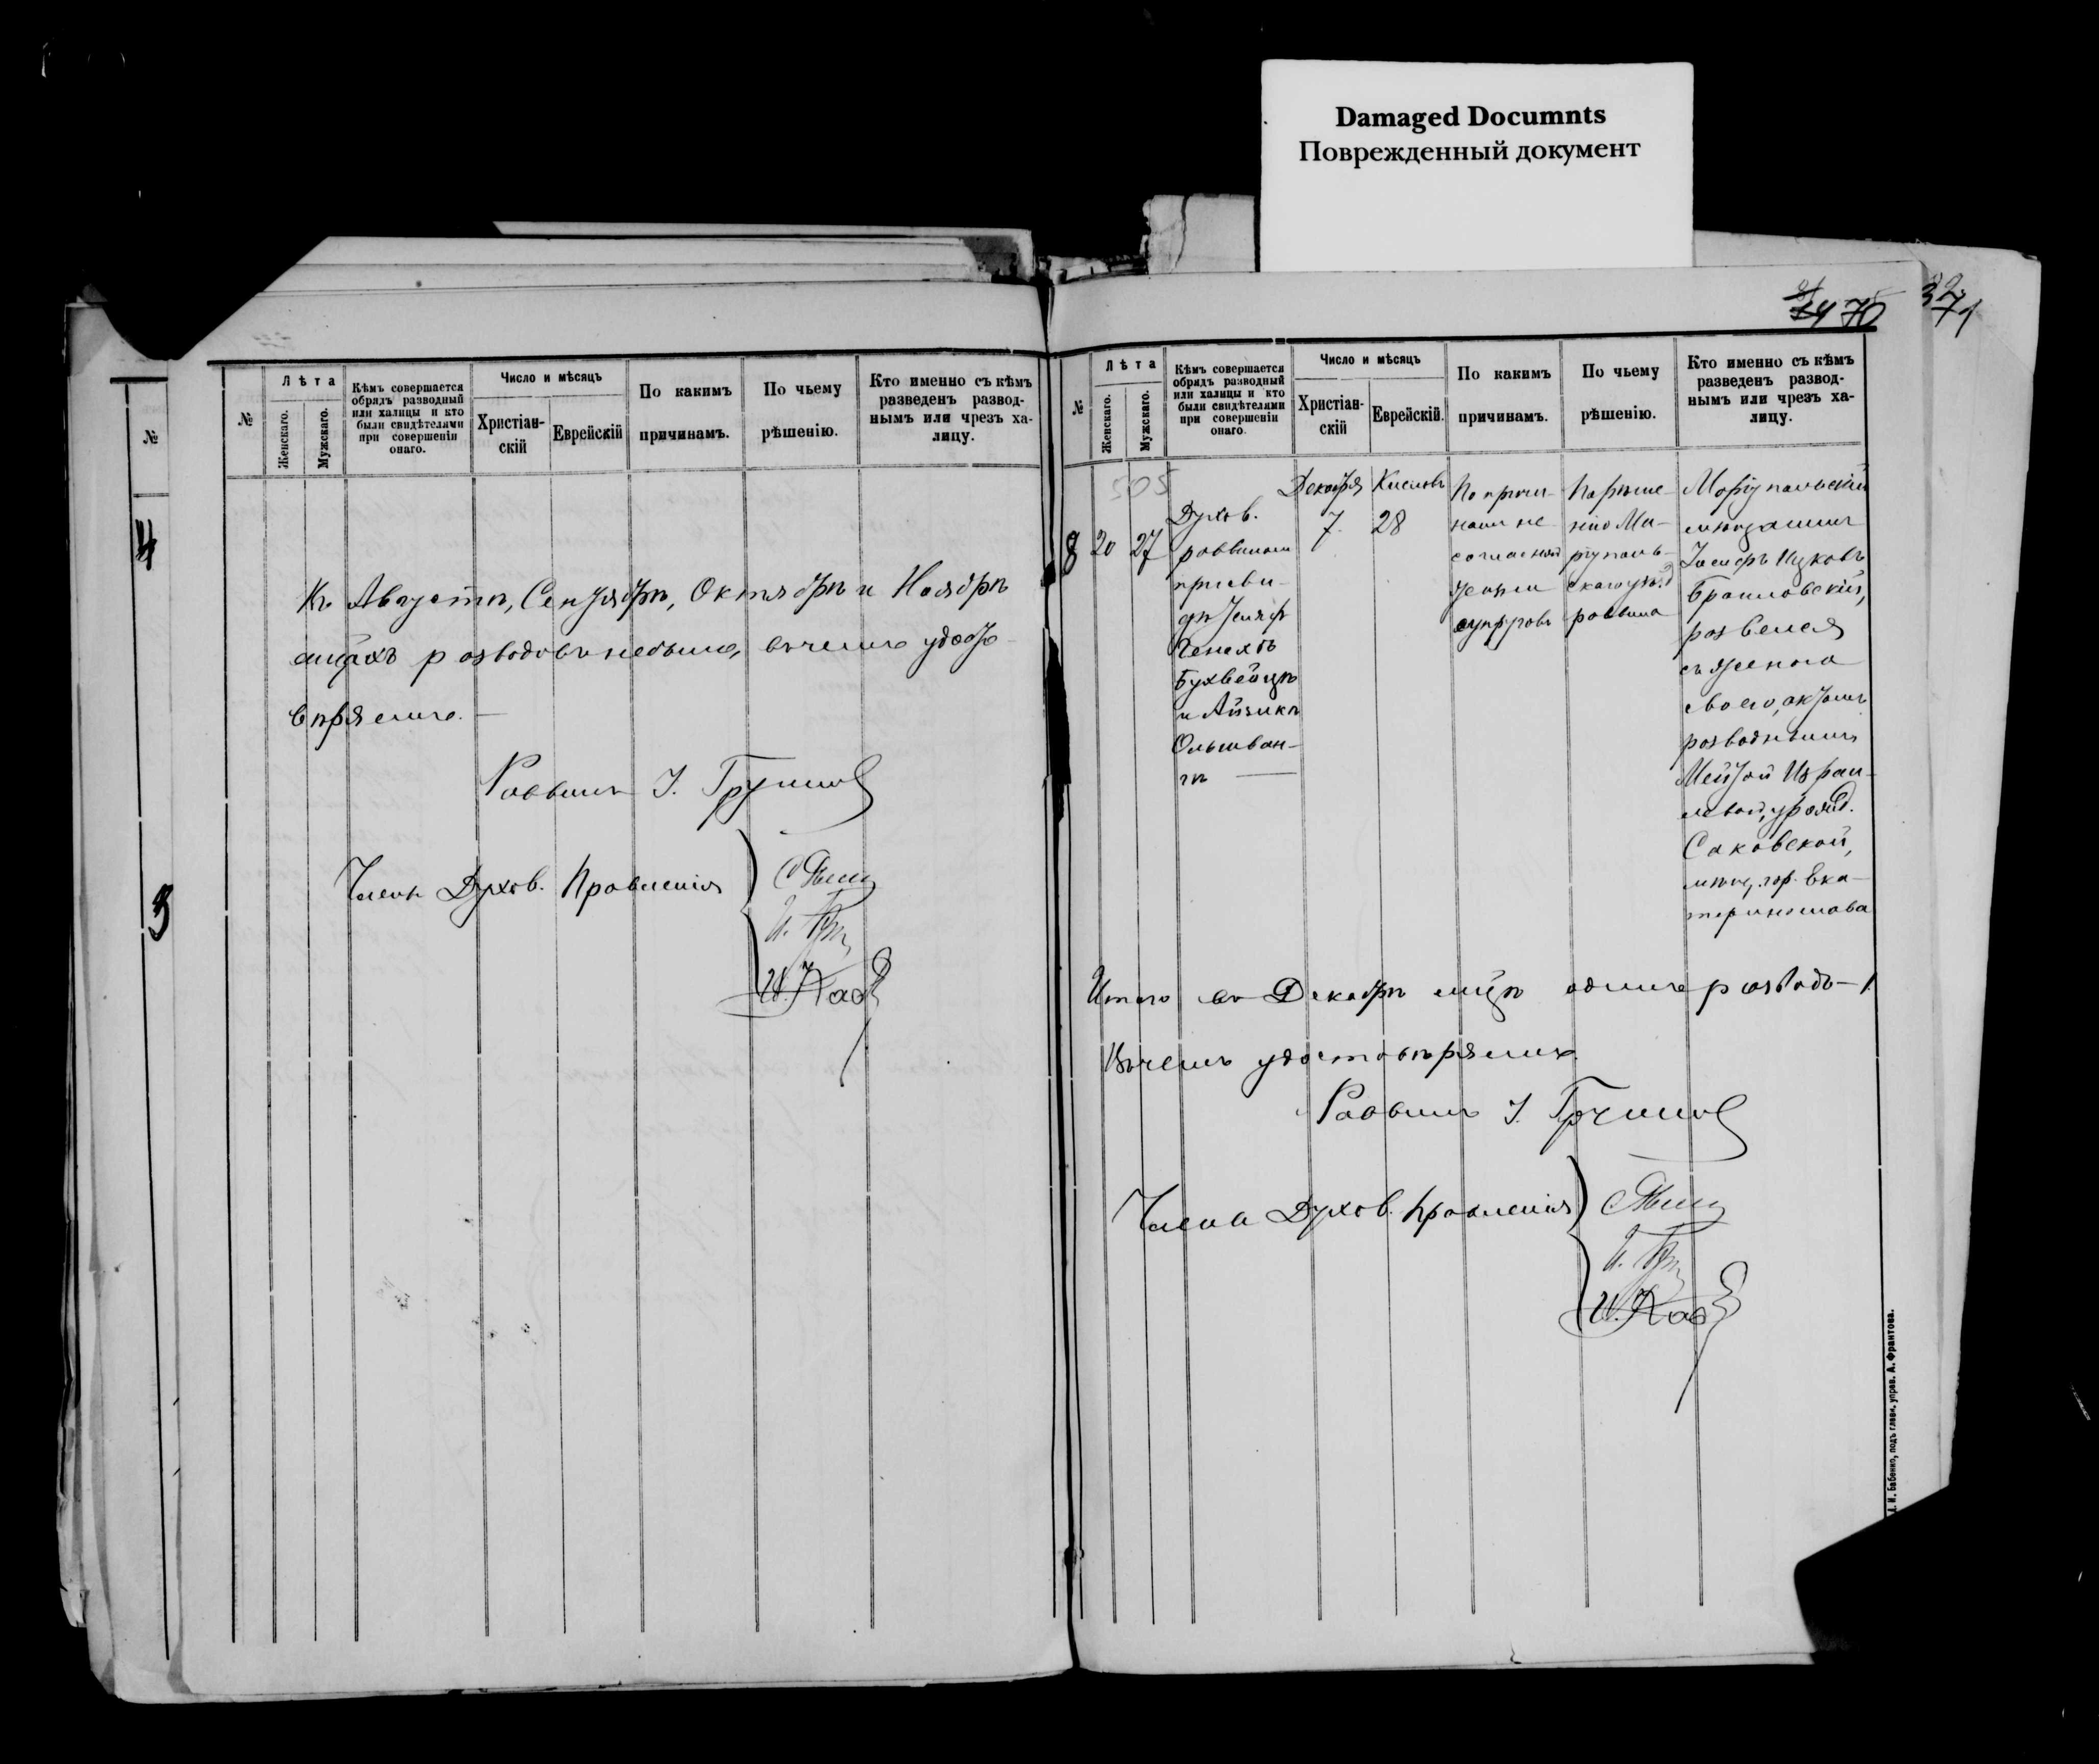 Damaged Documnts
Поврежденный документ
70
371
№
4
3
№
Лѣта
Женскаго.
Мужскаго.
Кѣмъ совершается
обрядъ разводный
или халицы и кто
были свидѣтелями
при совершеніи
онаго.
Число и мѣсяцъ
Христіан-
скій
Еврейскій
По какимъ
причинамъ.
По чьему
рѣшенію.
Кто именно съ кѣмъ
разведенъ развод-
нымъ или чрезъ ха-
лицу.
Въ Августѣ, Сентябрѣ, Октябрѣ и Ноябрѣ
мѣсяцахъ разводовъ небыло, въ чемъ удосто-
вѣряемъ. —
Раввинъ
Члены Духов. Правленія
№
Лѣта
Женскаго.
Мужскаго.
Кѣмъ совершается
обрядъ разводный
или халицы и кто
были свидѣтелями
при совершеніи
онаго.
Число и мѣсяцъ
Христіан-
скій
Еврейскій.
По какимъ
причинамъ.
По чьему
рѣшенію.
Кто именно съ кѣмъ
разведенъ развод-
нымъ или чрезъ ха-
лицу.
505
8
20
27
Духов.
раввиномъ
при сви-
дѣтеляхъ
Генахъ
Бухвейцѣ
и Айзикѣ
Ольшван-
гѣ —
Декабря
7
Кислевъ
28
По причи-
намъ не
согласной
жизни
супруговъ
По рѣше-
нію Ма-
ріуполь-
скаго
раввина
Маріупольскій
мѣщанинъ
Іосифъ Ицковъ
Браиловскій,
развелся
съ женою
своею, актомъ
разводнымъ
Мейтой Израи-
левой, урожд.
Саковской,
мѣщ. гор. Ека-
теринослава
Итого въ Декабрѣ мцѣ одинъ разводъ — 1.
Въ чемъ удостовѣряемъ
Раввинъ
Члены Духов. Правленія
И. Бабенко, подъ главн. управ. А. Франтова.